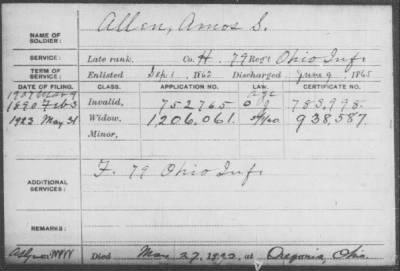 Allen, Amos S.
NAME OF SOLDIER:
SERVICE: Late rank, Co. H. 79 Reg't Ohio Inf.
TERM OF SERVICE: Enlisted Sep 1, 1862 Discharged June 9, 1865
DATE OF FILING. CLASS. APPLICATION NO. CERTIFICATE NO.
1907 Mar 9
1890 Feb 3 Invalid, 752765 783,998
1922 May 31 Widow, 1,206,061 938,587
Minor,
ADDITIONAL SERVICES: F. 79 Ohio Inf.
REMARKS:
Died Mar 27, 1922, at Oregonia, Ohio.